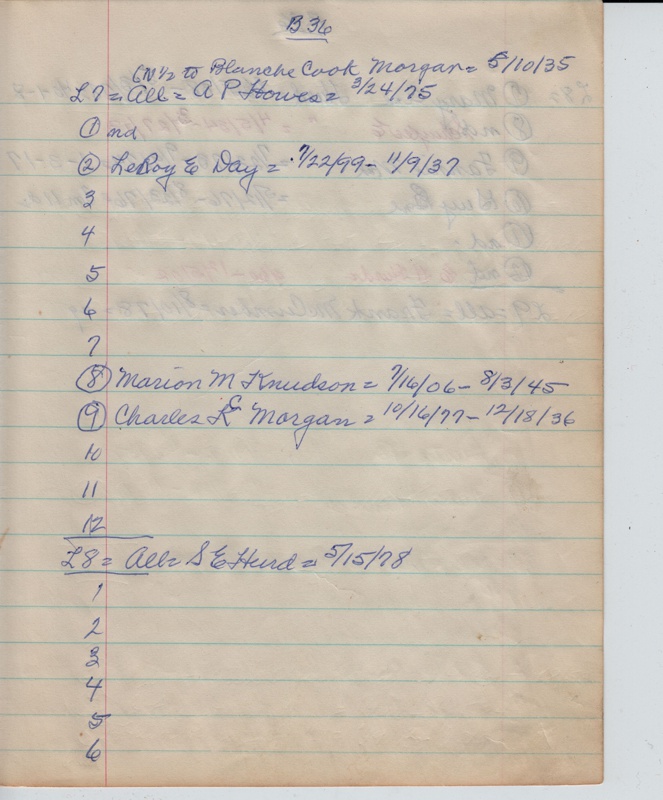 B 36
(N½ to Blanche Cook Morgan = 5/10/35
L7 = All = A P Howes = 3/24/75
① nd
② LeRoy E Day = 7/22/99 - 11/9/37
3
4
5
6
7
⑧ Marion M Knudson = 7/16/06 - 8/3/45
⑨ Charles E Morgan = 10/16/77 - 12/18/36
10
11
12
L8 = All = S E Hurd = 5/15/78
1
2
3
4
5
6